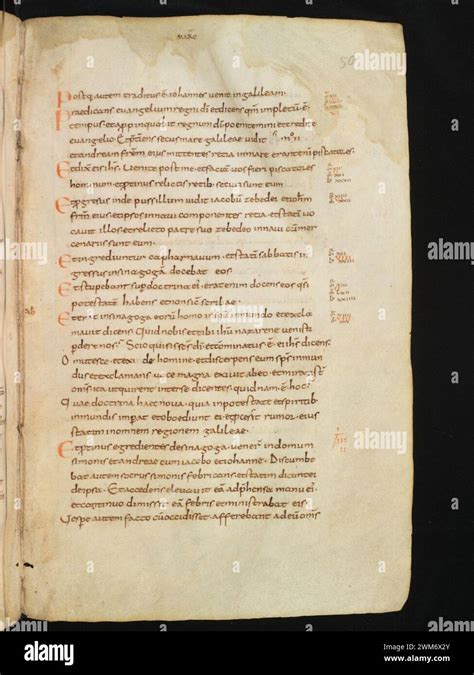 marc
50
Postq autem traditus e iohannes venit ingalileam
Praedicans evangelium regni di et dicens qm impletu e
tempus et appinquobit regnum di poenitemini et credite
evangelio Et p iens secus mare galileae vidit simon
et andream frem eius mittentes retia in mare erant eni piscatores
Et dixit eis ihs Venite post me et faciam vos fieri piscatores
hominum et ptinus relictis retib secuti sunt eum
Et p gressus inde pusillum vidit iacobu zebedei et ioh m
frm eius et ipsos in navi componentes retia et statim vo
cavit illos et relicto patre suo zebedeo in navi cum mer
cenariis sunt eum
Et ingrediuntur capharnavum et statim sabbatis in
gressus insinagoga docebat eos
Et stupebant sup doctrina ei erat enim docens eos q si
potestate habens et non sic scribae
Et erat insinagoga eoru homo in spu inmundo et excla
mavit dicens Quid nobis et tibi ihu nazarene venisti
perdere nos Scio qui sis scs di et comminatus e ei ihs dicens
Omutesce et exi de homine et discerpens eum sps inmun
dus et exclamans voce magna exivit ab eo et mirati st
oms ita ut quirerent inter se dicentes quidnam e hoc
Quae doctrina haec nova quia in potestate et spiritib
inmundis impat et oboediunt ei et pcessit rumor eius
statim in omnem regionem galileae
Et ptinus egredientes desinagoga vener in domum
simonis et andreae cum iacobo et iohanne Discumbe
bat autem socrus simonis febricitans et statim dicunt ei
de ipsa Et accedens elevavit ea adphensa manu ei
et continuo dimisit ea febris et ministrabat eis
Vespe autem facto cu occidisset sol afferebant ad eum oms
alamy
alamy
alamy
Image ID: 2WM6X2Y
www.alamy.com